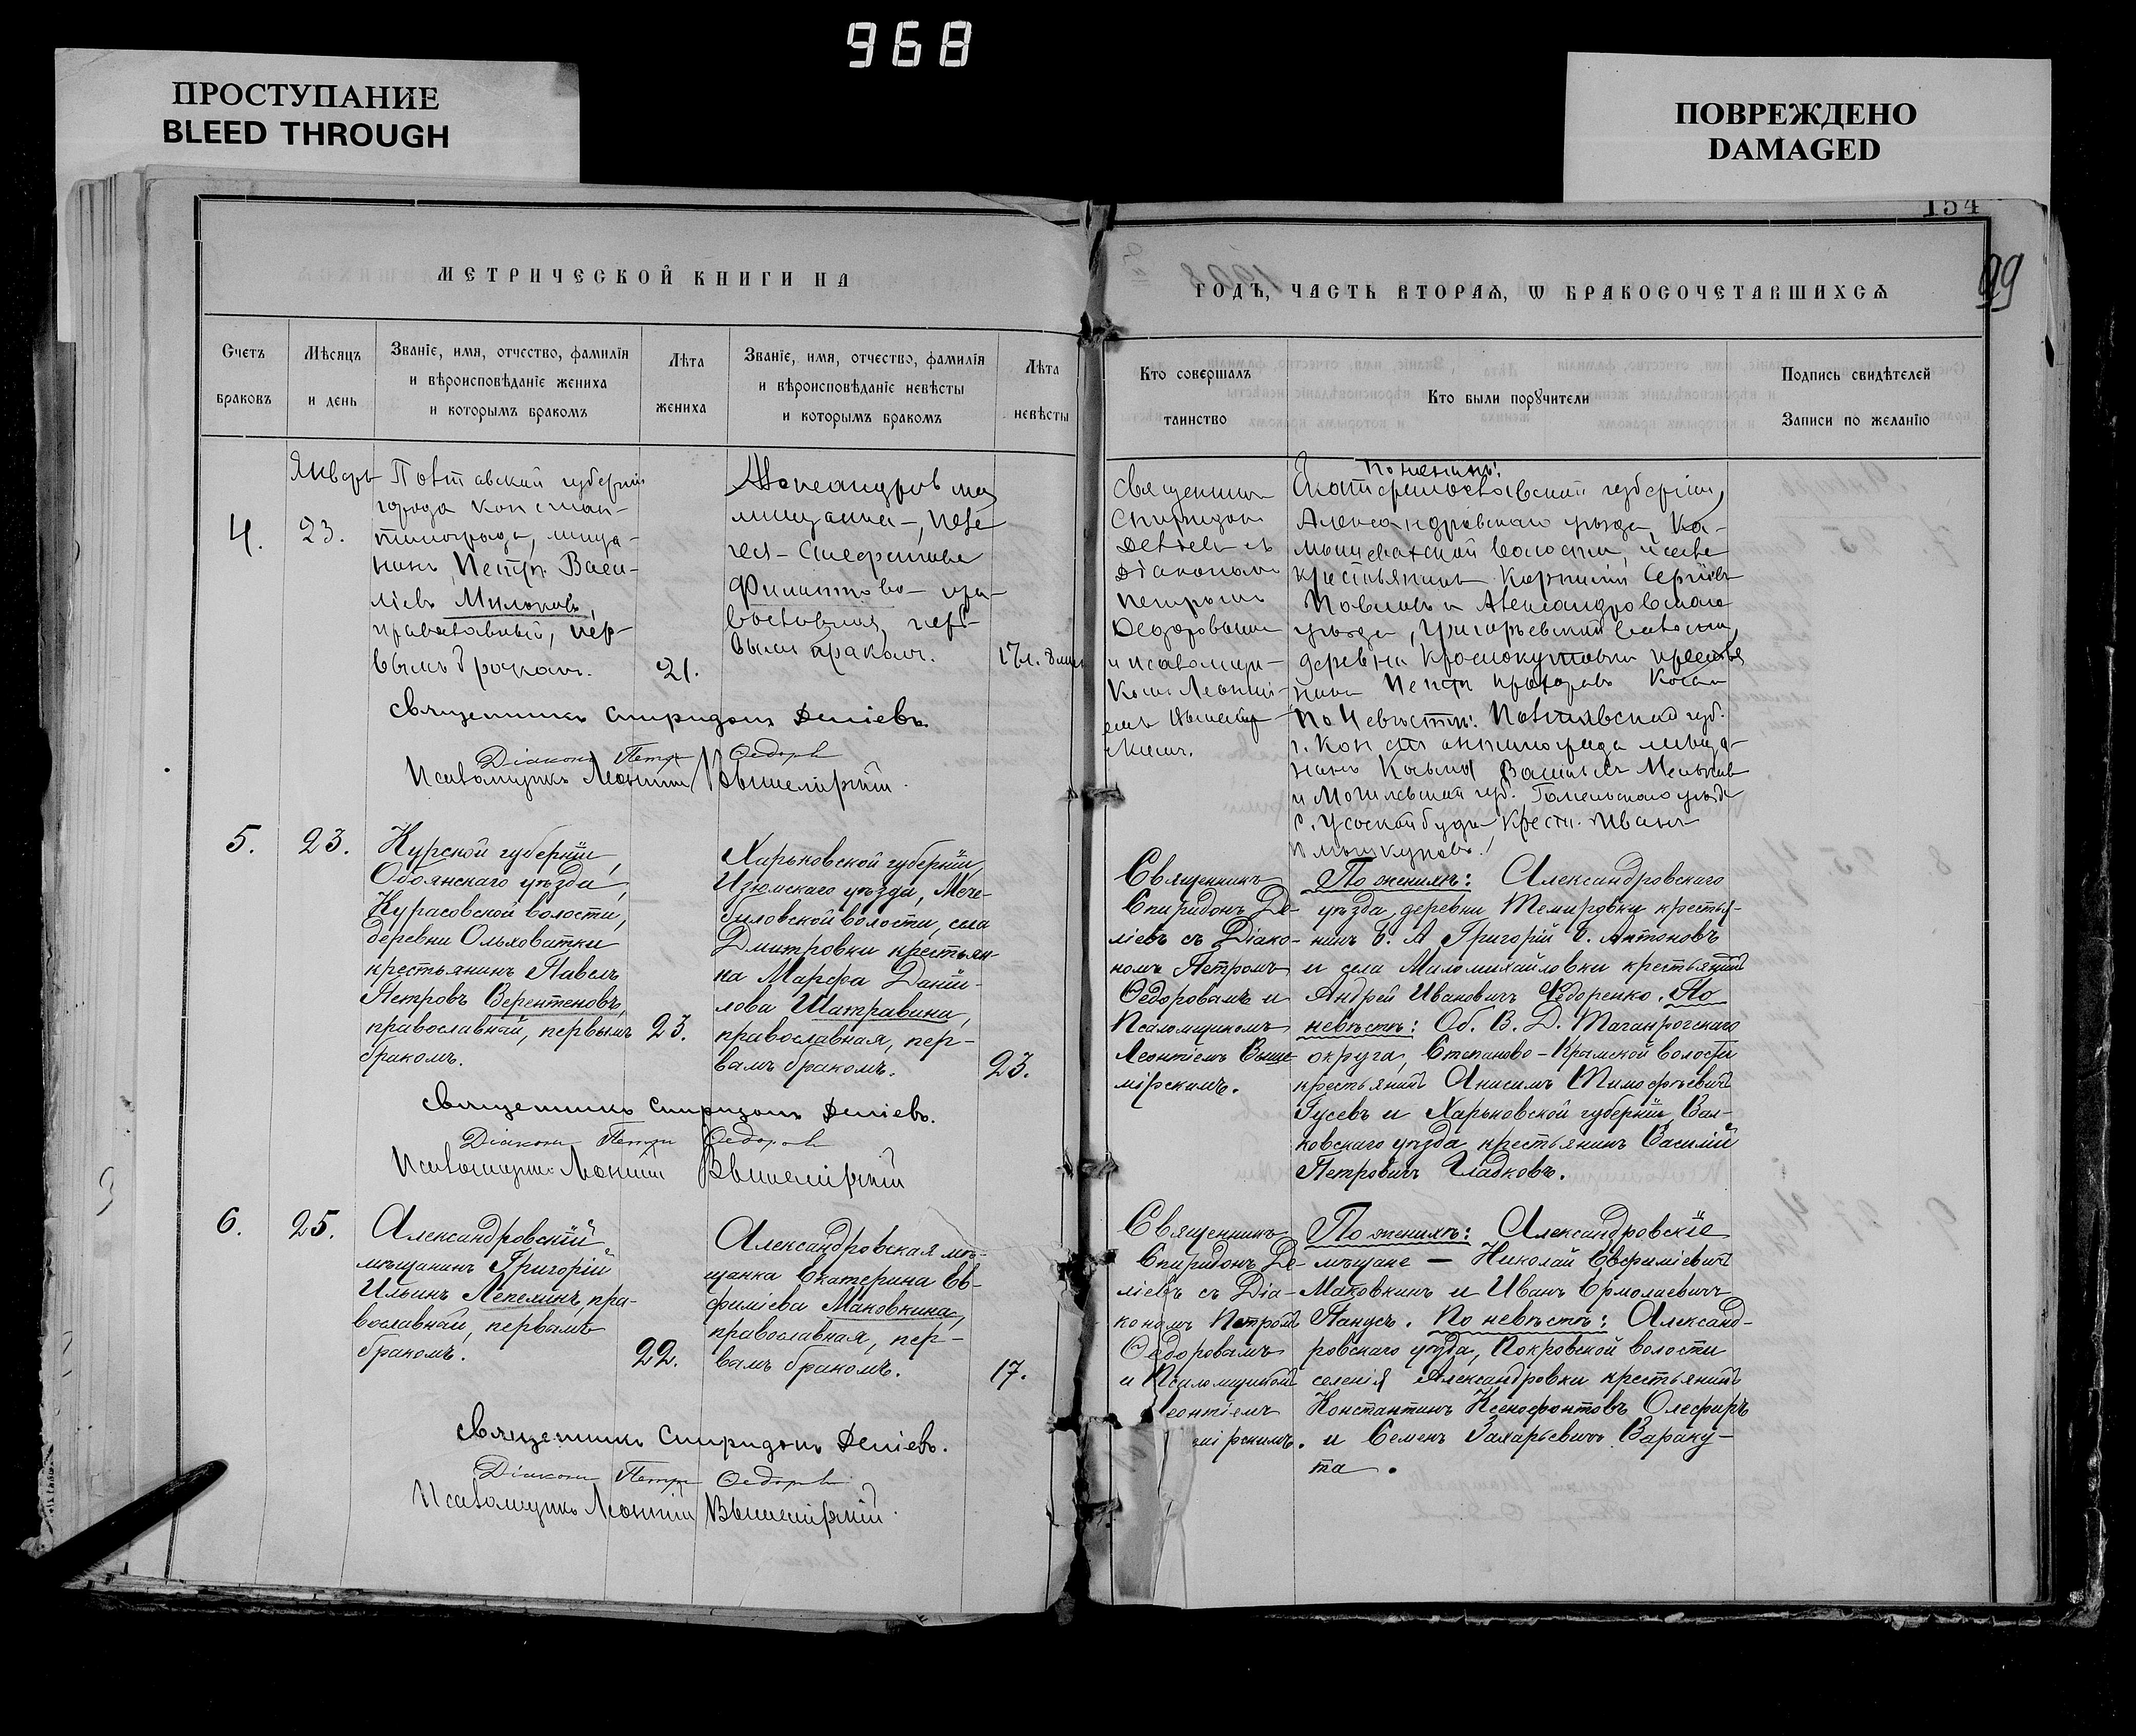 968
ПРОСТУПАНИЕ
BLEED THROUGH
ПОВРЕЖДЕНО
DAMAGED
154
99
МЕТРИЧЕСКОЙ КНИГИ НА
ГОДЪ, ЧАСТЬ ВТОРАѦ, Ѡ БРАКОСОЧЕТАВШИХСѦ
Счетъ
браковъ
Мѣсяцъ
и день
Званіе, имя, отчество, фамилія
и вѣроисповѣданіе жениха
и которымъ бракомъ
Лѣта
жениха
Званіе, имя, отчество, фамилія
и вѣроисповѣданіе невѣсты
и которымъ бракомъ
Лѣта
невѣсты
Кто совершалъ
таинство
Кто были порꙋчители
Подпись свидѣтелей
Записи по желанію
Январь
4.
23.
Полтавской губерніи
города Констан-
тинограда, мѣща-
нинъ Петръ Васи-
ліевъ
православный, пер-
вымъ бракомъ.
21.
Александровская
мѣщанка
православная, пер-
вымъ бракомъ.
Священникъ
Спиридонъ
Деліевъ съ
Діакономъ
Петромъ
Ѳедоровымъ
и псаломщи-
комъ Леонті-
емъ
По женихѣ:
Екатеринославской губерніи,
Александровскаго уѣзда,
волости,
крестьянинъ Сергіевъ
и Александровскаго
уѣзда, Григорьевской волости,
деревни Краснокутовки
Петръ
По Невѣстѣ: Полтавской губ.
г. Константинограда мѣща-
нинъ
и Могилевской губ. Гомельскаго уѣзда
крест. Иванъ
Священникъ Спиридонъ Деліевъ.
Діаконъ Петръ Ѳедоровъ
Псаломщикъ Леонтій Вышемірскій.
5.
23.
Курской губерніи,
Обоянскаго уѣзда,
Курасовской волости,
деревни Ольховатки
крестьянинъ Павелъ
Петровъ Верентеновъ,
православный, первымъ
бракомъ.
23.
Харьковской губерніи,
Изюмскаго уѣзда,
волости, села
Дмитровки крестьян-
ка Марфа Даніи-
лова Шатравина,
православная, пер-
вымъ бракомъ.
23.
Священникъ
Спиридонъ Де-
ліевъ съ Діако-
номъ Петромъ
Ѳедоровымъ и
Псаломщикомъ
Леонтіемъ Выше-
мірскимъ.
По женихѣ: Александровскаго
уѣзда, деревни Темировки крестья-
нинъ Григорій Антоновъ
и села Маломихайловки крестьянинъ
Андрей Ивановичъ Ѳедоренко. По
невѣстѣ: Об. В. Д. Таганрогскаго
округа, Степаново-Крымской волости
крестьянинъ Анисимъ Тимофѣевичъ
Гусевъ и Харьковской губерніи, Вал-
ковскаго уѣзда крестьянинъ Василій
Петровичъ Гладковъ.
Священникъ Спиридонъ Деліевъ.
Діаконъ Петръ Ѳедоровъ
Псаломщикъ Леонтій Вышемірскій
6.
25.
Александровскій
мѣщанинъ Григорій
Ильинъ Лепехинъ, пра-
вославный, первымъ
бракомъ.
22.
Александровская мѣ-
щанка Екатерина Ев-
фиміева Маковкина,
православная, пер-
вымъ бракомъ.
17.
Священникъ
Спиридонъ Де-
ліевъ съ Діа-
кономъ Петромъ
Ѳедоровымъ
и Псаломщикомъ
Леонтіемъ
мірскимъ.
По женихѣ: Александровскіе
мѣщане — Николай Евфиміевичъ
Маковкинъ и Иванъ Ермолаевичъ
Панусъ. По невѣстѣ: Александ-
ровскаго уѣзда, Покровской волости
селенія Александровки крестьянинъ
Константинъ Ксенофонтовъ Олефиръ
и Семенъ Захарьевичъ Вараку-
та.
Священникъ Спиридонъ Деліевъ.
Діаконъ Петръ Ѳедоровъ
Псаломщикъ Леонтій Вышемірскій.